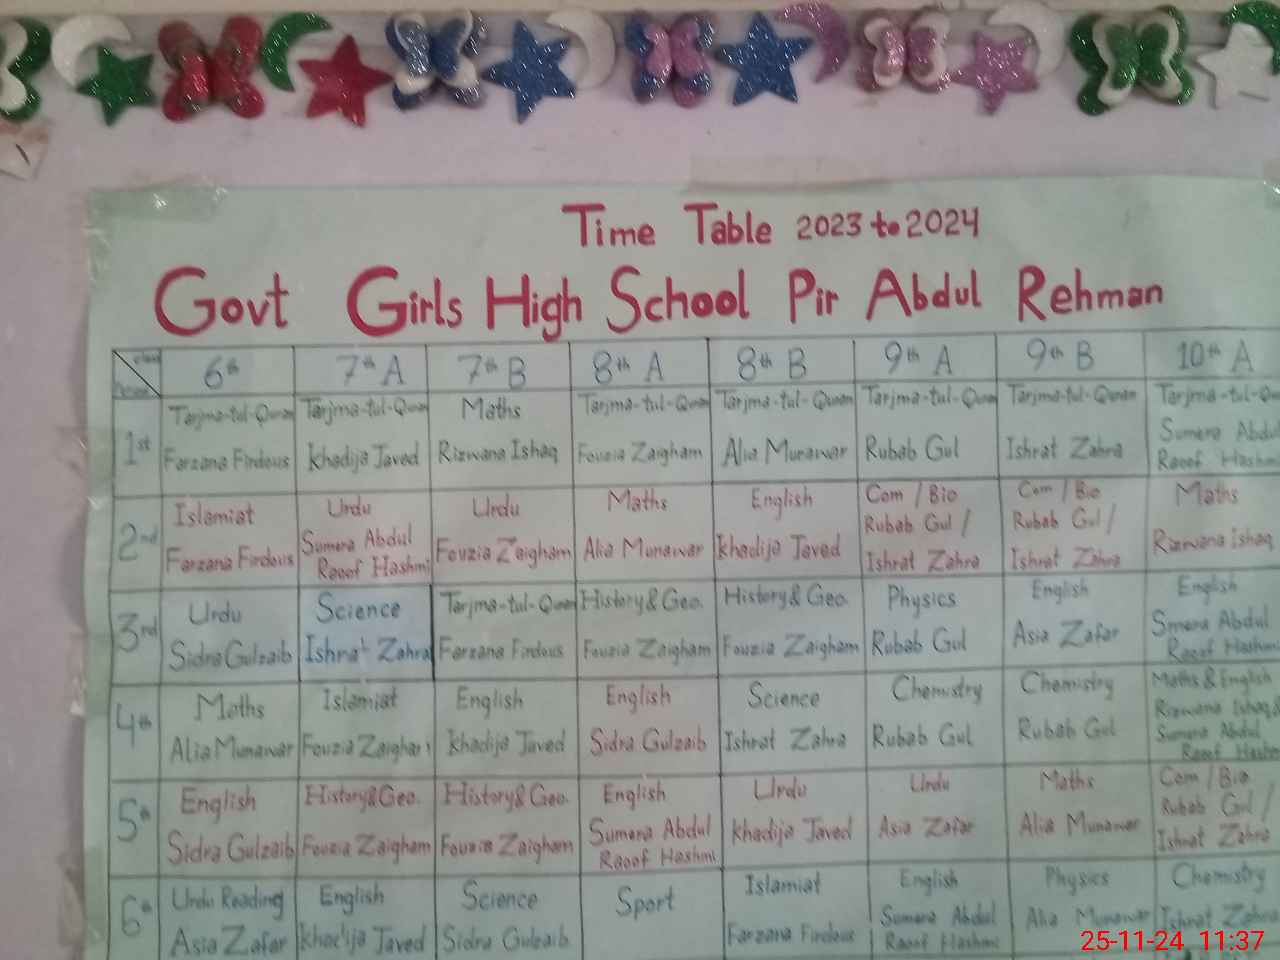 Time Table 2023 to 2024
Govt Girls High School Pir Abdul Rehman
class 6th 7th A 7th B 8th A 8th B 9th A 9th B 10th A
1st
Tarjma-tul-Quran
Farzana Firdous
Tarjma-tul-Quran
Khadija Javed
Maths
Rizwana Ishaq
Tarjma-tul-Quran
Fouzia Zaigham
Tarjma-tul-Quran
Alia Munawar
Tarjma-tul-Quran
Rubab Gul
Tarjma-tul-Quran
Ishrat Zahra
Tarjma-tul-Q
Sumera Abdul
Raoof Hashmi
2nd
Islamiat
Farzana Firdous
Urdu
Sumera Abdul
Raoof Hashmi
Urdu
Fouzia Zaigham
Maths
Alia Munawar
English
Khadija Javed
Com / Bio
Rubab Gul /
Ishrat Zahra
Com / Bio
Rubab Gul /
Ishrat Zahra
Maths
Rizwana Ishaq
3rd
Urdu
Sidra Gulzaib
Science
Ishrat Zahra
Tarjma-tul-Quran
Farzana Firdous
History & Geo.
Fouzia Zaigham
History & Geo.
Fouzia Zaigham
Physics
Rubab Gul
English
Asia Zafar
English
Smera Abdul
Raoof Hashmi
4th
Maths
Alia Munawar
Islamiat
Fouzia Zaigham
English
Khadija Javed
English
Sidra Gulzaib
Science
Ishrat Zahra
Chemistry
Rubab Gul
Chemistry
Rubab Gul
Maths & English
Rizwana Ishaq &
Sumera Abdul
Raoof Hashm
5th
English
Sidra Gulzaib
History & Geo.
Fouzia Zaigham
History & Geo.
Fouzia Zaigham
English
Sumera Abdul
Raoof Hashmi
Urdu
Khadija Javed
Urdu
Asia Zafar
Maths
Alia Munawar
Com / Bio
Rubab Gul /
Ishrat Zahra
6th
Urdu Reading
Asia Zafar
English
Khadija Javed
Science
Sidra Gulzaib
Sport
Islamiat
Farzana Firdous
English
Sumera Abdul
Raoof Hashmi
Physics
Alia Munawar
Chemistry
Ishrat Zahra
25-11-24 11:37